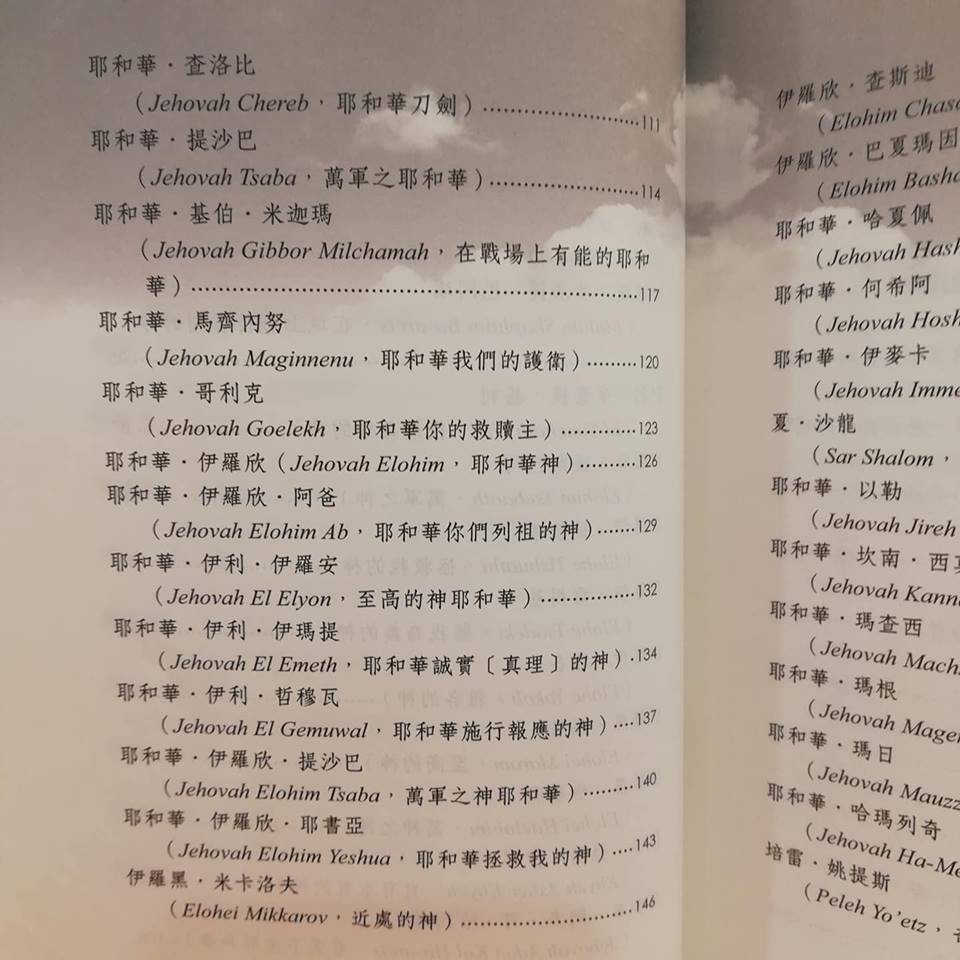 耶和華．查洛比
（Jehovah Chereb，耶和華刀劍）……………………111
耶和華．提沙巴
（Jehovah Tsaba，萬軍之耶和華）……………………114
耶和華．基伯．米迦瑪
（Jehovah Gibbor Milchamah，在戰場上有能的耶和
華）……………………………………………………117
耶和華．馬齊內努
（Jehovah Maginnenu，耶和華我們的護衛）………120
耶和華．哥利克
（Jehovah Goelekh，耶和華你的救贖主）……………123
耶和華．伊羅欣（Jehovah Elohim，耶和華神）………126
耶和華．伊羅欣．阿爸
（Jehovah Elohim Ab，耶和華你們列祖的神）……129
耶和華．伊利．伊羅安
（Jehovah El Elyon，至高的神耶和華）………………132
耶和華．伊利．伊瑪提
（Jehovah El Emeth，耶和華誠實〔真理〕的神）．134
耶和華．伊利．哲穆瓦
（Jehovah El Gemuwal，耶和華施行報應的神）……137
耶和華．伊羅欣．提沙巴
（Jehovah Elohim Tsaba，萬軍之神耶和華）………140
耶和華．伊羅欣．耶書亞
（Jehovah Elohim Yeshua，耶和華拯救我的神）……143
伊羅黑．米卡洛夫
（Elohei Mikkarov，近處的神）……………………146
伊羅欣．查斯迪
（Elohim Chas
伊羅欣．巴夏瑪因
（Elohim Basha
耶和華．哈夏佩
（Jehovah Hash
耶和華．何希阿
（Jehovah Hosh
耶和華．伊麥卡
（Jehovah Imme
夏．沙龍
（Sar Shalom，
耶和華．以勒
（Jehovah Jireh
耶和華．坎南．西
（Jehovah Kann
耶和華．瑪查西
（Jehovah Mach
耶和華．瑪根
（Jehovah Mage
耶和華．瑪日
（Jehovah Mauzz
耶和華．哈瑪列奇
（Jehovah Ha-Me
培雷．姚提斯
（Peleh Yo'etz，